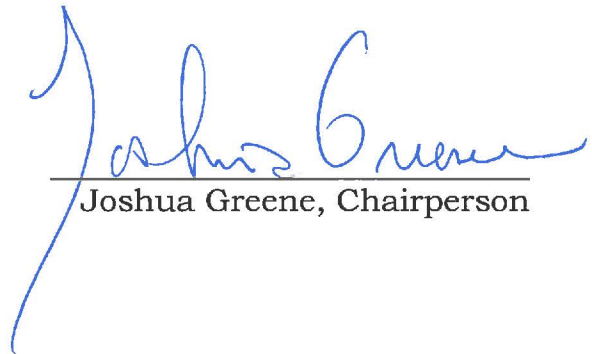 Joshua Greene
Joshua Greene, Chairperson